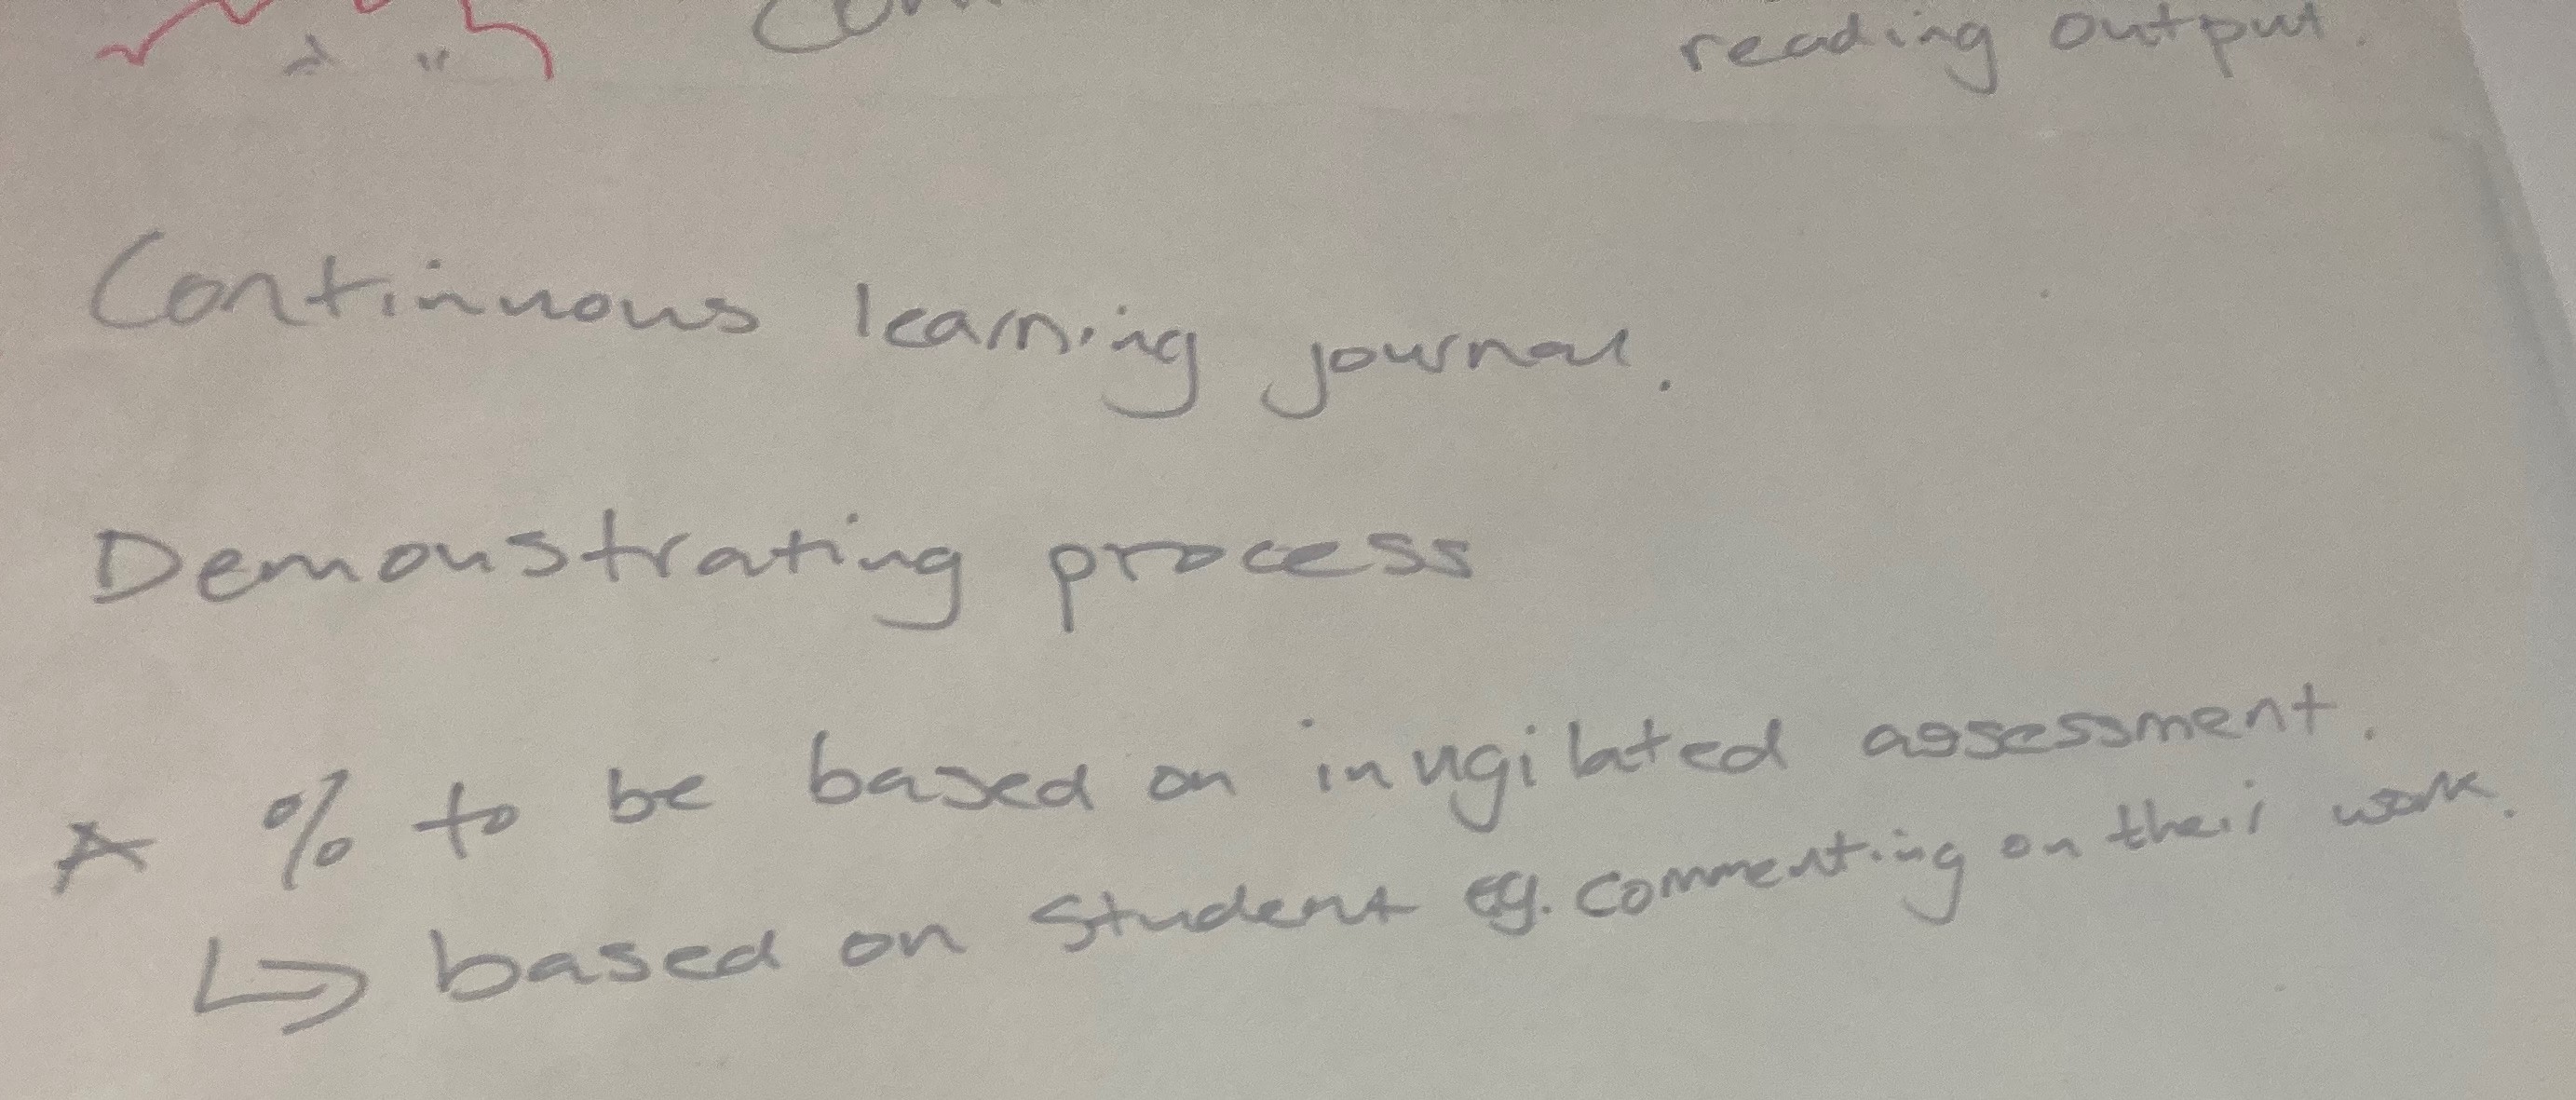 reading output.
Continuous learning journal.
Demonstrating process
* % to be based on invigilated assessment.
↳ based on student eg. commenting on their work.